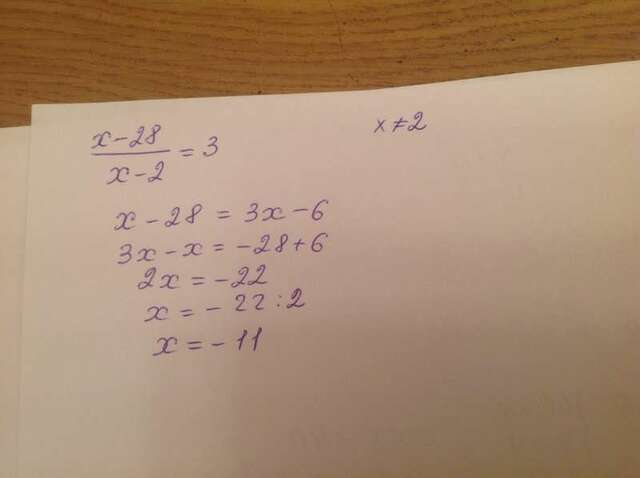 x-28
/
x-2
= 3
x ≠ 2
x - 28 = 3x - 6
3x - x = -28+6
2x = -22
x = - 22 : 2
x = - 11